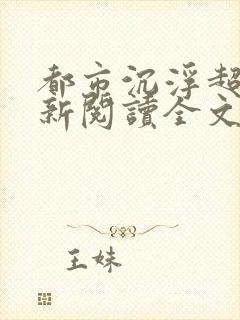 都市沉浮超
新閱讀全文
王妹